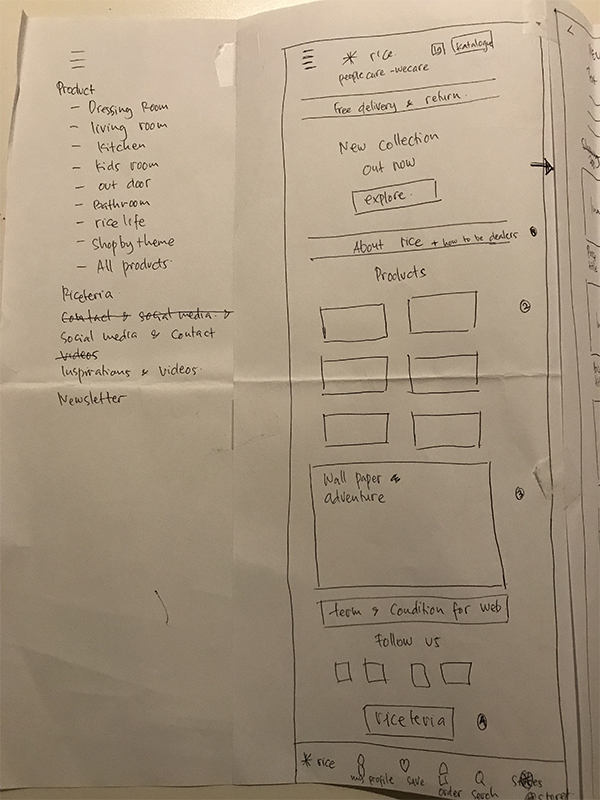 Product
- Dressing Room
- living room
- Kitchen
- kids room
- out door
- Bathroom
- rice life
- Shop by theme
- All products.
Riceteria
Contact & social media.
Social media & Contact
Videos
Inspirations & videos.
Newsletter
* rice
Katalogue
people care - we care
Free delivery & return.
New Collection
Out now
explore.
About rice + how to be dealers
Products
2
Wall paper &
adventure
3
term & Condition for web
Follow us
riceteria
4
* rice
profile
save
order
Search
stores